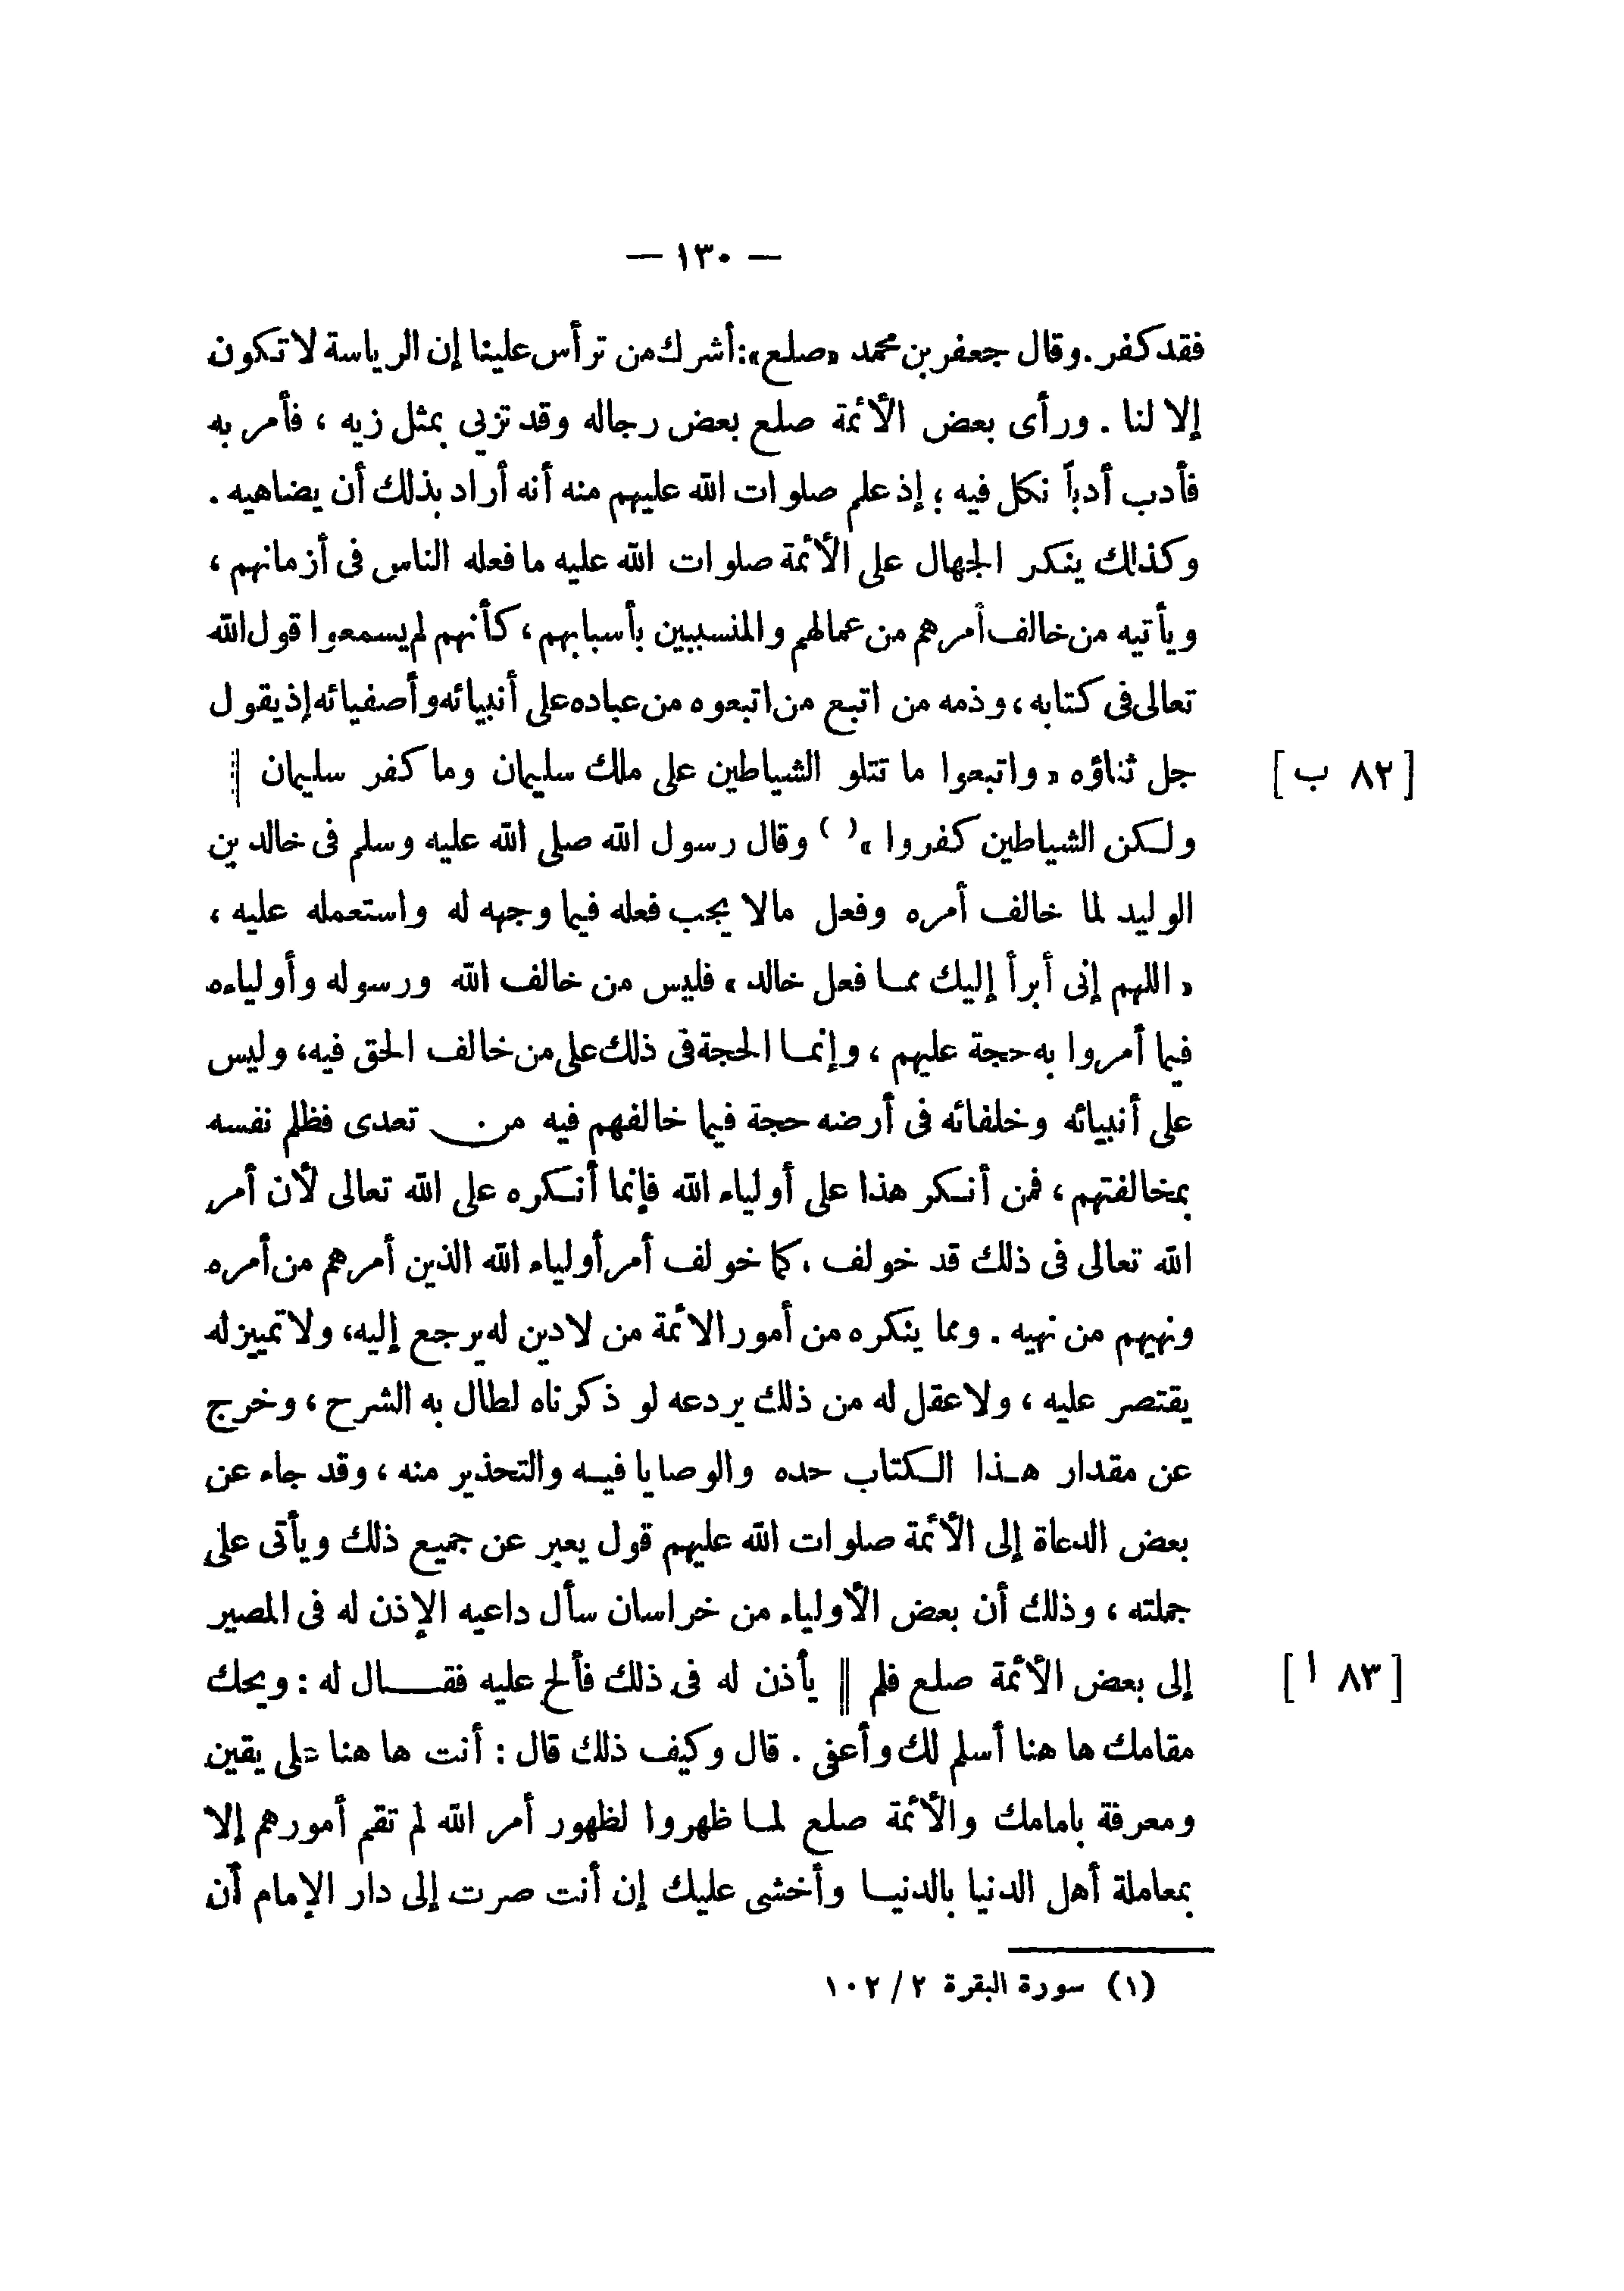 — ١٣٠ —
فقد كفر. وقال جعفر بن محمد «صلع»: أشرك من ترأس علينا إن الرياسة لا تكون
إلا لنا . ورأى بعض الأئمة صلع بعض رجاله وقد تزيى بمثل زيه ، فأمر به
فأدب أدباً نكل فيه ؛ إذ علم صلوات الله عليهم منه أنه أراد بذلك أن يضاهيه .
وكذلك ينكر الجهال على الأئمة صلوات الله عليه ما فعله الناس فى أزمانهم ،
ويأتيه من خالف أمرهم من عمالهم والمنسبين بأسبابهم ، كأنهم لم يسمعوا قول الله
تعالى فى كتابه ، وذمه من اتبع من اتبعوه من عباده على أنبيائه وأصفيائه إذ يقول
جل ثناؤه « واتبعوا ما تتلو الشياطين على ملك سليمان وما كفر سليمان || [ ٨٢ ب ]
ولكن الشياطين كفروا »( ) وقال رسول الله صلى الله عليه وسلم فى خالد بن
الوليد لما خالف أمره وفعل مالا يجب فعله فيما وجهه له واستعمله عليه ،
« اللهم إنى أبرأ إليك مما فعل خالد » فليس من خالف الله ورسوله وأولياءه
فيما أمروا به حجة عليهم ، وإنما الحجة فى ذلك على من خالف الحق فيه، وليس
على أنبيائه وخلفائه فى أرضه حجة فيما خالفهم فيه من تعدى فظلم نفسه
بمخالفتهم ، فمن أنكر هذا على أولياء الله فإنما أنكره على الله تعالى لأن أمر
الله تعالى فى ذلك قد خولف ، كما خولف أمر أولياء الله الذين أمرهم من أمره
ونهيهم من نهيه . ومما ينكره من أمور الائمة من لادين له يرجع إليه، ولا تمييز له
يقتصر عليه ، ولا عقل له من ذلك يردعه لو ذكرناه لطال به الشرح ، وخرج
عن مقدار هذا الكتاب حده والوصايا فيه والتحذير منه ، وقد جاء عن
بعض الدعاة إلى الأئمة صلوات الله عليهم قول يعبر عن جميع ذلك ويأتى على
جملته ، وذلك أن بعض الأولياء من خراسان سأل داعيه الإذن له فى المصير
إلى بعض الأئمة صلع فلم || يأذن له فى ذلك فألح عليه فقال له : ويحك [ ٨٣ ا ]
مقامك ها هنا أسلم لك وأعفى . قال وكيف ذلك قال : أنت ها هنا على يقين
ومعرفة بامامك والأئمة صلع لما ظهروا لظهور أمر الله لم تقم أمورهم إلا
بمعاملة أهل الدنيا بالدنيا وأخشى عليك إن أنت صرت إلى دار الإمام أن
(١) سورة البقرة ٢ / ١٠٢